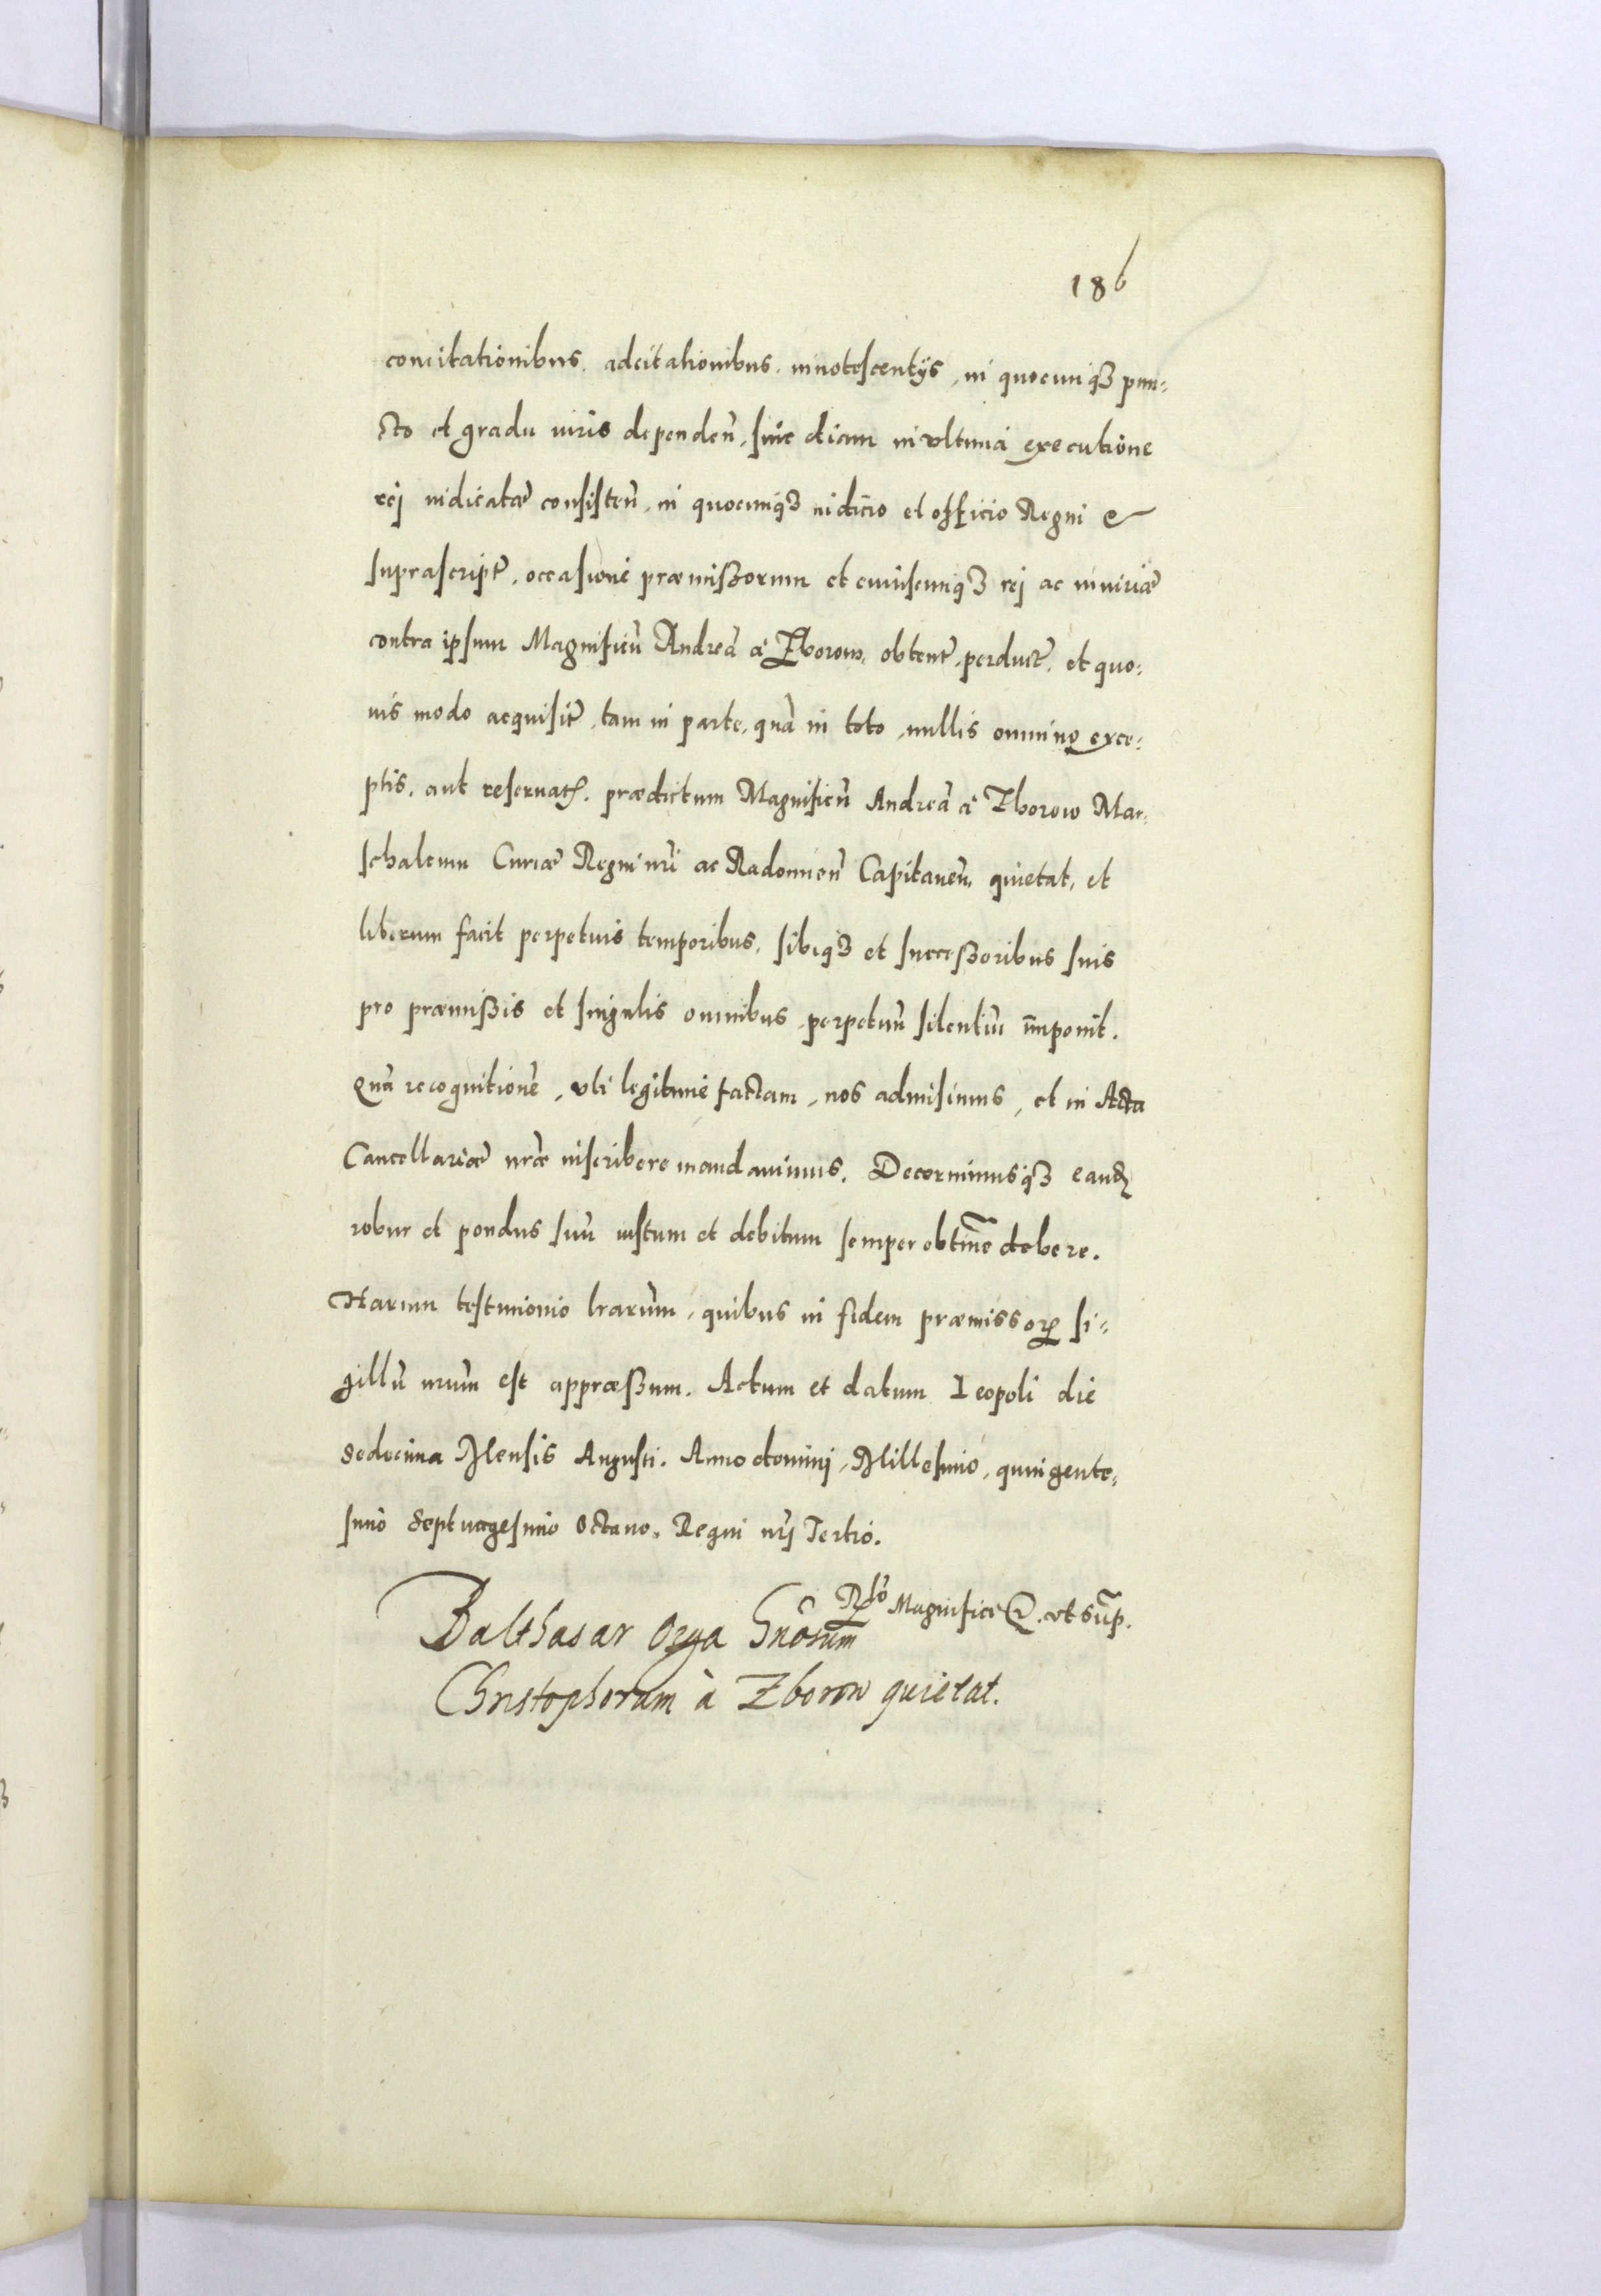 186
concitationibus, adcitationibus, innotescentijs, in quocunqꝫ pun-
cto et gradu iuris dependeñ, siue etiam in vltima executione
rej iudicatæ consisteñ, in quocunqꝫ iudicio et officio Regni &
suprascript̃, occasione præmißorum et cuiuscunqꝫ rej ac iniuriæ
contra ipsum Magnificũ Andreã à Zborow, obtent̃, perduct̃, et quo-
uis modo acquisit̃, tam in parte, quã in toto, nullis omnino exce-
ptis, aut reseruatꝭ, prædictum Magnificũ Andreã à Zborow Mar-
schalcum Curiæ Regni nrĩ ac Radomieñ Capitaneũ, quietat, et
liberum facit perpetuis temporibus, sibiqꝫ et succeßoribus suis
pro præmißis et singulis omnibus, perpetuũ silentiũ imponit.
Quã recognitionẽ, vti legitimè factam, nos admisimus, et in Acta
Cancellariæ nræ̃ inscribere mandauimus. Decernimusqꝫ eandẽ
robur et pondus suũ iustum et debitum semper obtinẽ debere.
Harum testimonio lrarũm, quibus in fidem præmissorꝝ si-
gillũ nrũm est appræßum. Actum et datum Leopoli die
Sedecima Mensis Augusti. Anno domini, Millesimo, quingente-
simo Septuagesimo Octauo, Regni nrĩ Tertio.
Rlõ Magnifici &. vt sup̃.
Balthasar Ozga Gñosum
Christophorum à Zborow quietat.